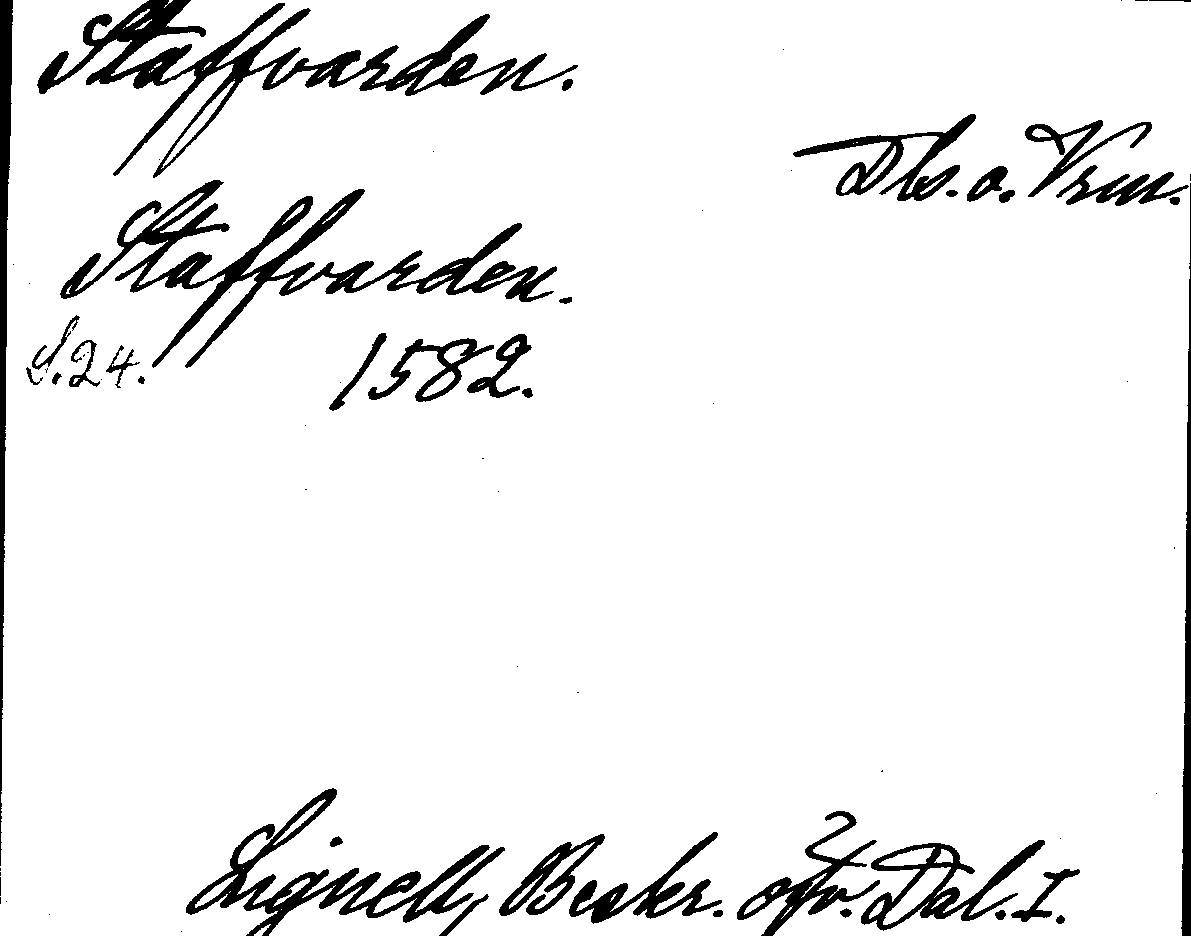 Staffvarden.
Dls. o. Vrm.
Staffvarden.
S. 24. 1582.
Lignell, Beskr. öfv. Dal. I.